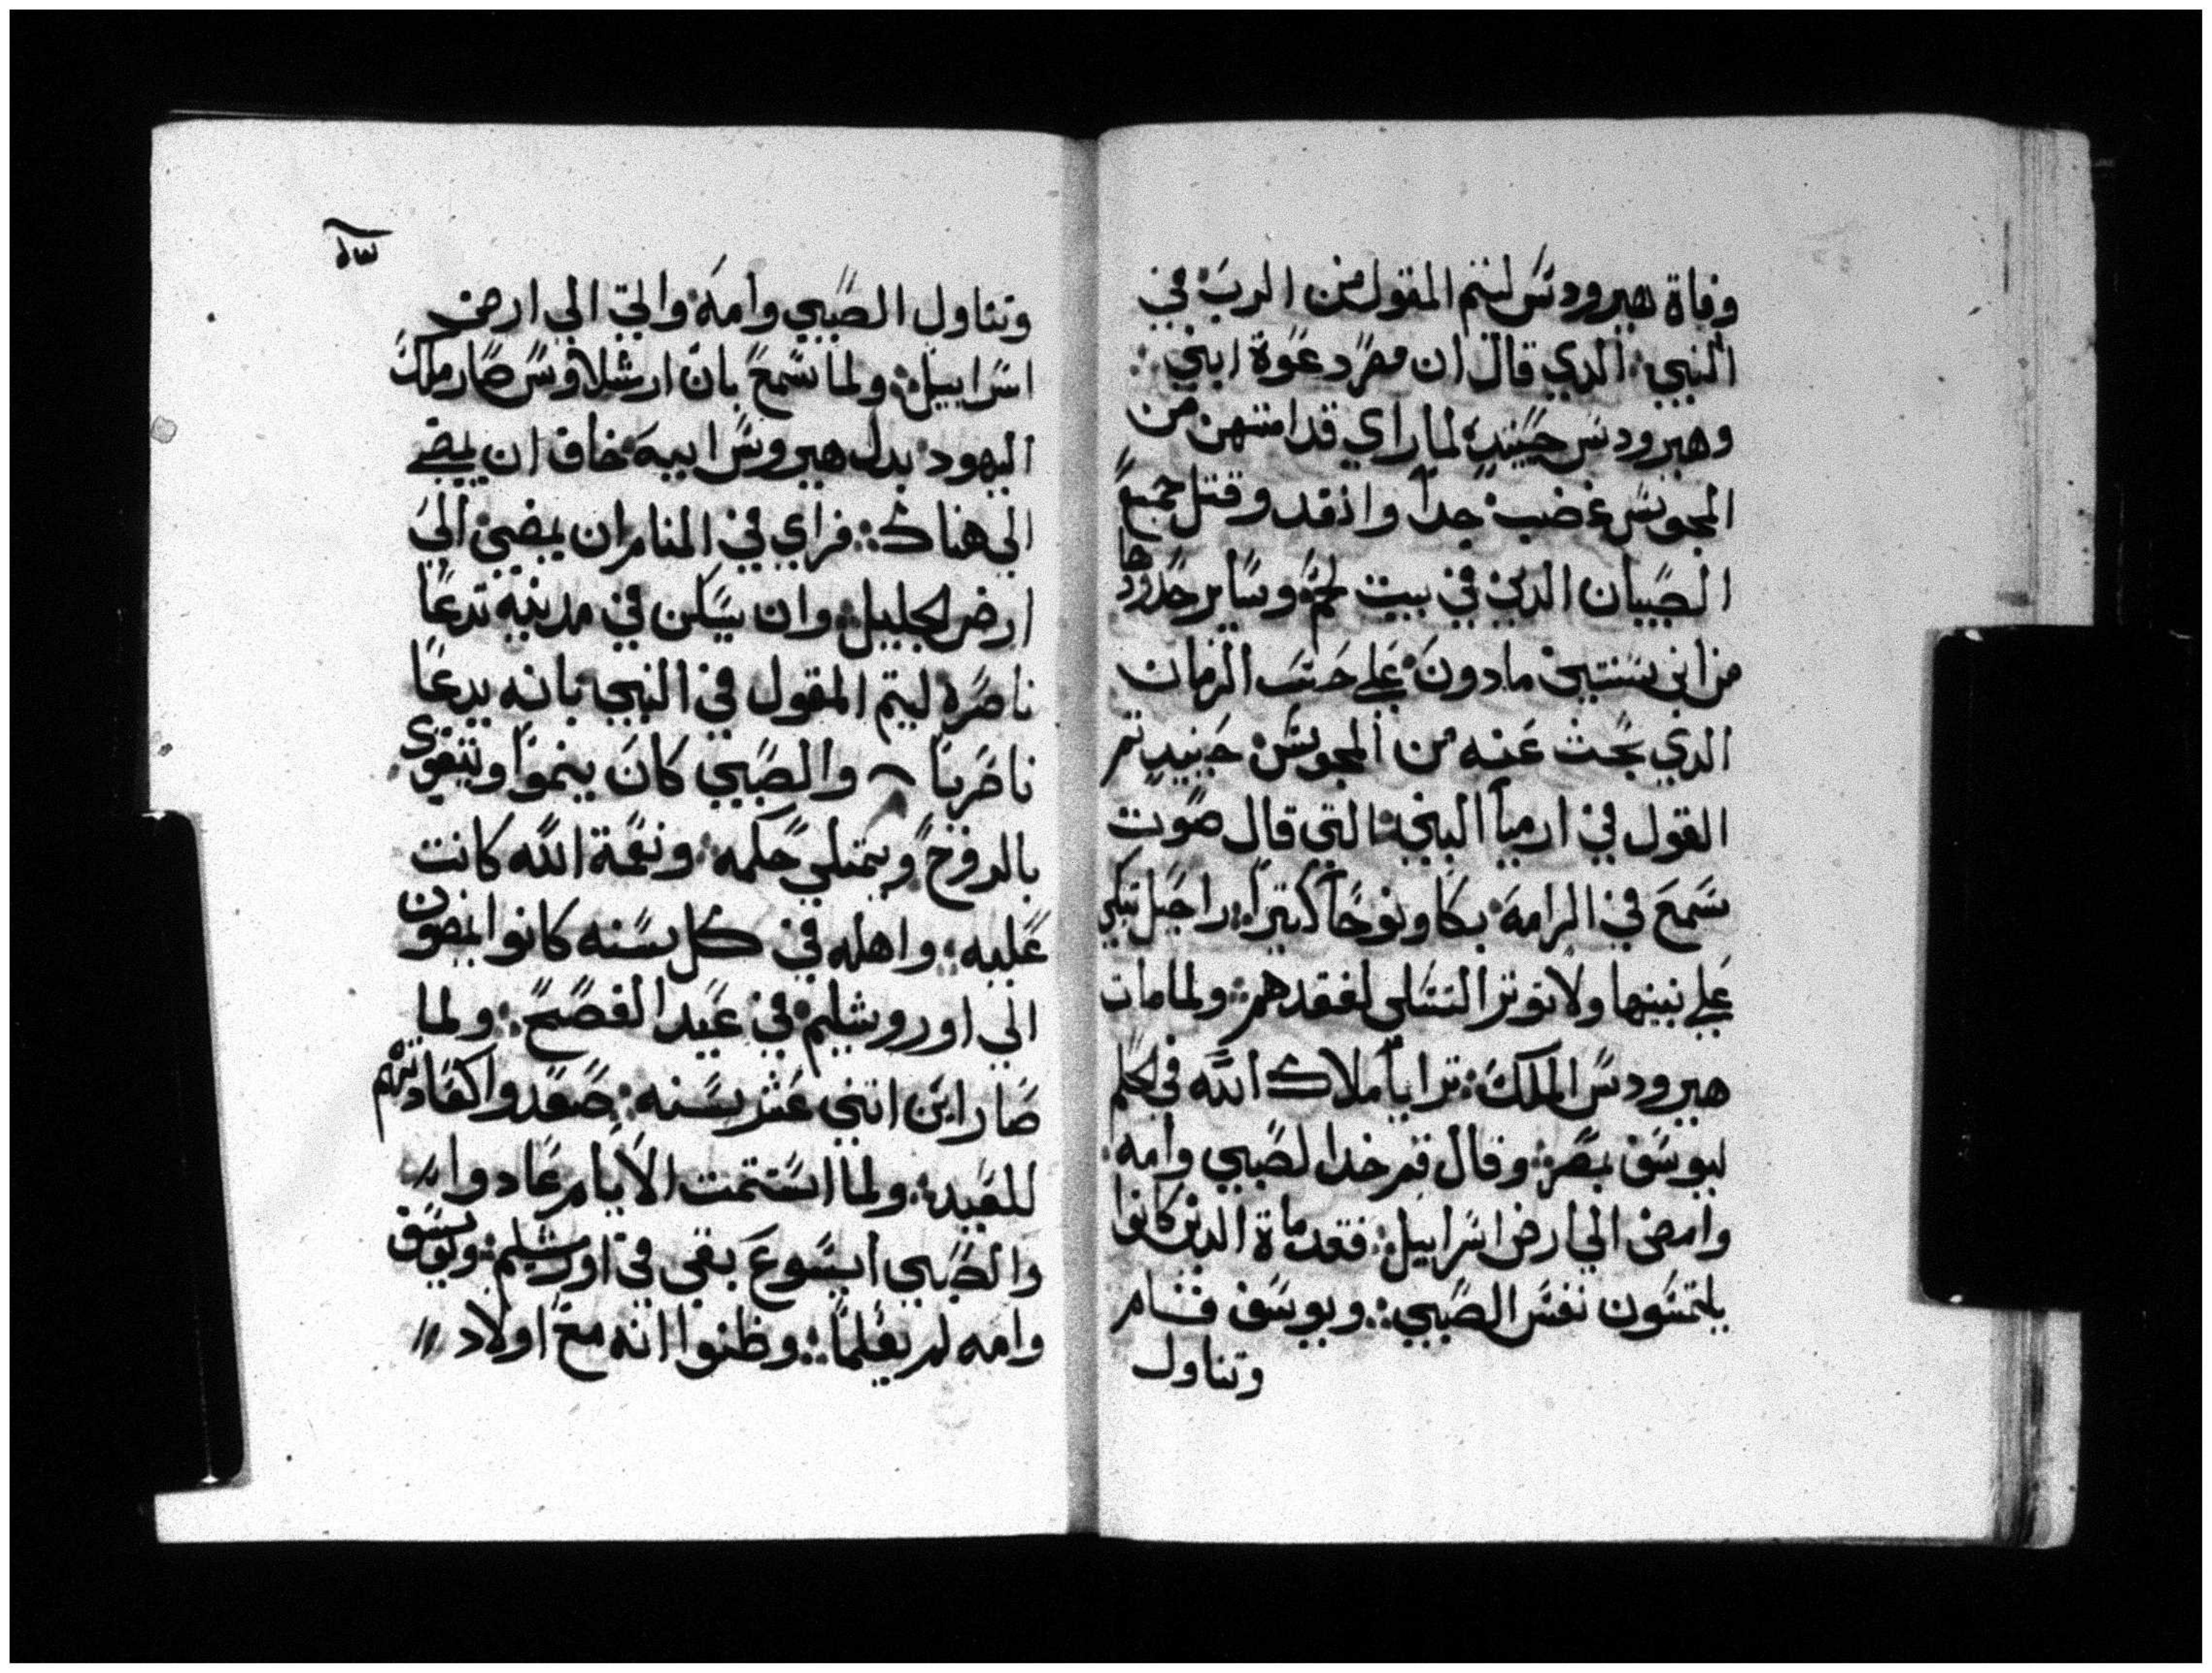 وفاة هيرودس ليتم المقول من الرب في
النبي: الدي قال ان مصر دعوة ابني:
وهيرودس حينيد: لما راي قد امتهن من
المجوس غضب جداً وانفد وقتل جميع
الصبيان الدين في بيت لحم: وساير حدودها
من ابن سنتين مادون: علي حسب الزمان
الدي بحث عنه من المجوس: حينيد تم
القول في ارميا النبي: التي قال صوت
سمع في الرامه: بكا ونوحاً كتيراً: راحيل تبكي
علي بنيها ولا توتر التسلي لفقدهم: ولما مات
هيرودس الملك: ترايا ملاك الله في الحلم
ليوسف بمصر: وقال قم خد الصبي وامه:
وامض الي ارض اسراييل: فقد ماة الدين كانوا
يلتمسون نفس الصبي:: ويوسف قام
وتناول
وتناول الصبي وامه: واتي الي ارض
اسراييل: ولما سمع بان ارشلاوس صار ملك
اليهود: بدل هيروس ابيه: خاف ان يمضي
الي هناك:: فراي في المنام ان يمضي الي
ارض الجليل: وان يسكن في مدينه تدعا
ناصره ليتم المقول في النبي: بانه يدعا
ناصريا والصبي كان ينموا ويتقوي
بالروح ويمتلي حكمه: ونعمة الله كانت
عليه:: واهله في كل سنه كانوا يمضون
الي اوروشليم: في عيد الفصح:: ولما
صار ابن اتني عشر سنه: صعدوا كعادتهم
للعيد: ولما استتمت الايام عادوا
والصبي ايسوع بقي في اورشليم: ويوسف
وامه لم يعلما:: وظنوا انه مع اولاد